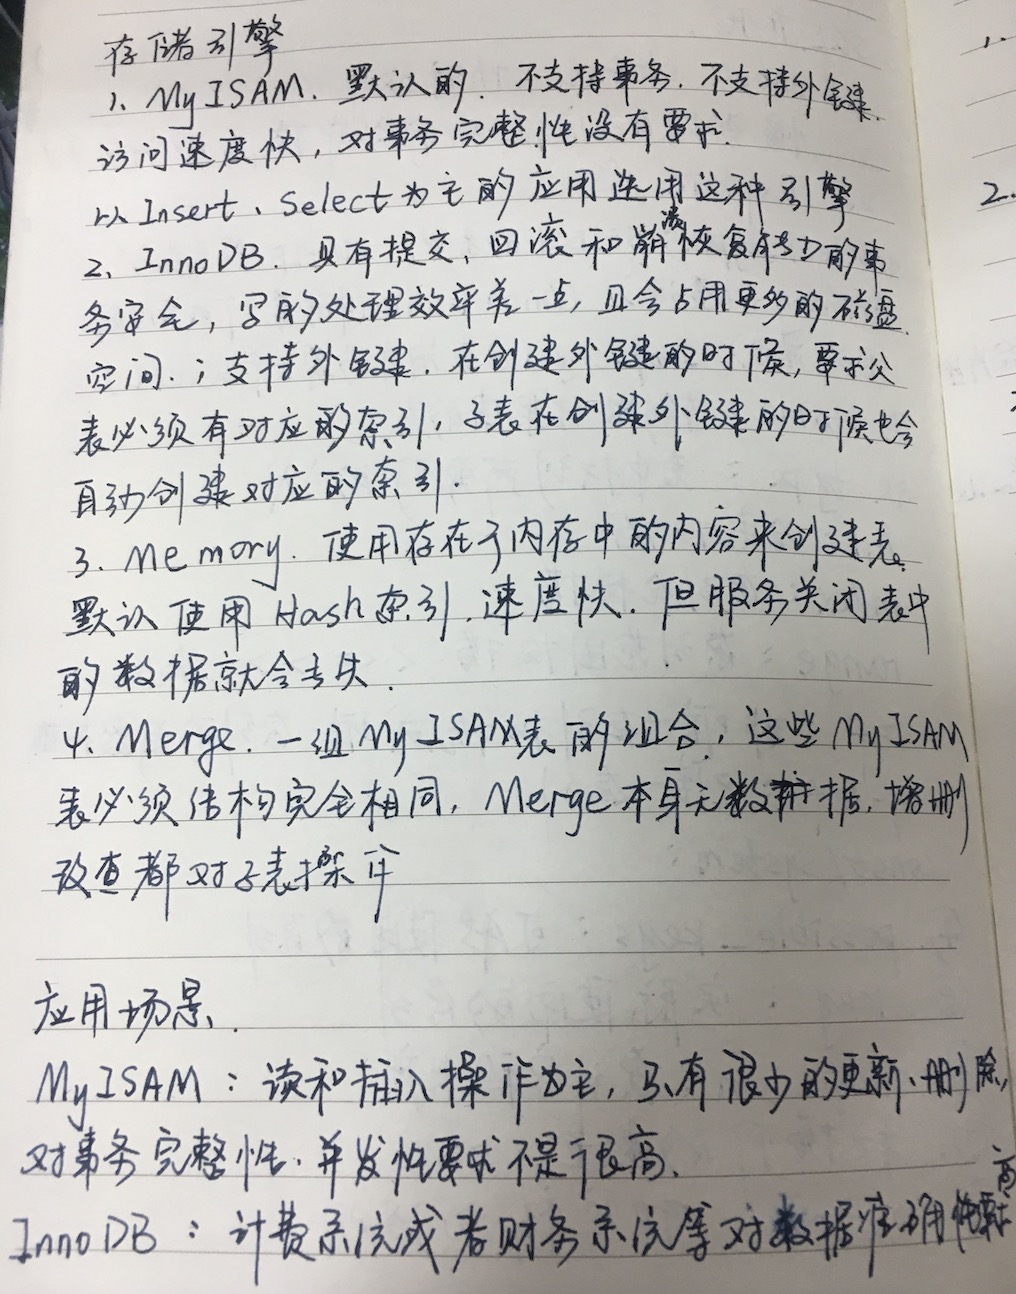 存储引擎
1、MyISAM. 默认的. 不支持事务. 不支持外键.
访问速度快, 对事务完整性没有要求.
以Insert、Select为主的应用选用这种引擎
2、InnoDB. 具有提交、回滚和崩溃恢复能力的事
务安全, 写的处理效率差一点, 且会占用更多的磁盘
空间.; 支持外键. 在创建外键的时候, 要求父
表必须有对应的索引, 子表在创建外键的时候也会
自动创建对应的索引.
3. Memory. 使用存在于内存中的内容来创建表.
默认使用Hash索引, 速度快. 但服务关闭表中
的数据就会丢失.
4. Merge. 一组MyISAM表的组合, 这些MyISAM
表必须结构完全相同, Merge本身无数据, 增删
改查都对子表操作
应用场景.
MyISAM: 读和插入操作为主, 只有很少的更新、删除,
对事务完整性、并发性要求不是很高.
InnoDB: 计费系统或者财务系统等对数据准确性要求高
1.
2.